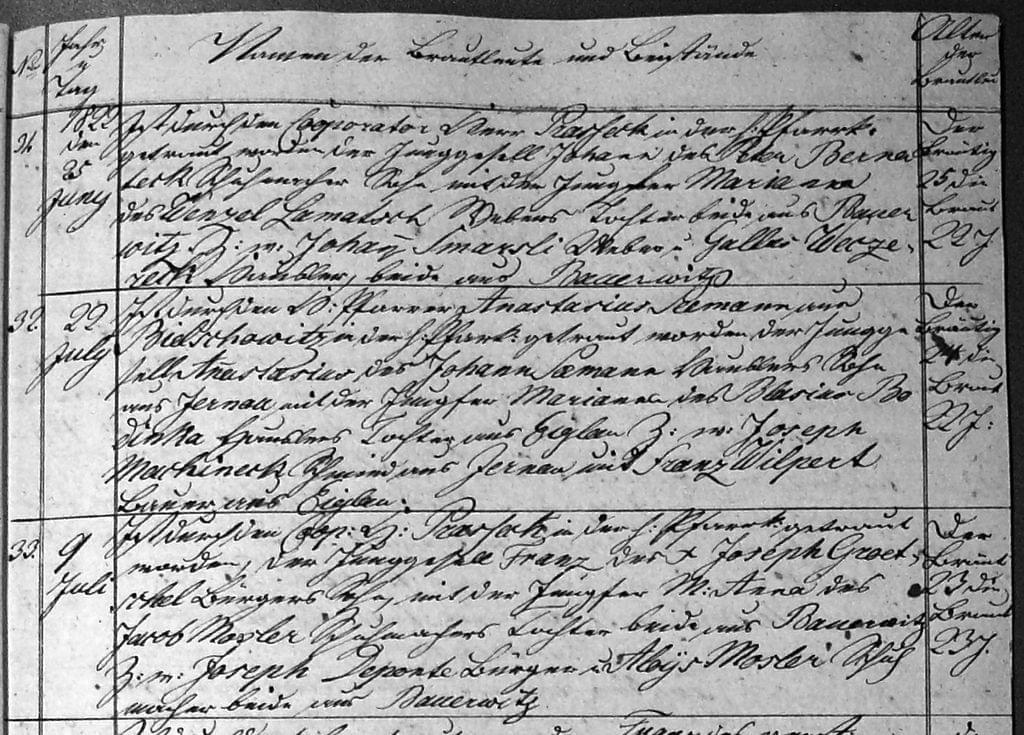 No
Jahr
u
Tag
Namen der Brautleute und Beistände
Alter
der
Brautleu
31.
1822
den
25
Juny
Ist durch den Cooporator Herr Prasseck in der h: Pfarrk:
getraut worden der Junggesell Johann des Peter Berna
teck Schuhmacher Sohn mit der Jungfer Marianna
des Wenzel Lamatsch Webers Tochter beide aus Bauer
witz. Z: w: Johann Smarsli Weber u Gallus Wecze
reck Häusler, beide aus Bauerwitz
Der
Bräutig
25 die
Braut
22 J.
32.
22
July
Ist durch den H: Pfarrer Anastasius Semann aus
Bielschowitz in der h: Pfark: getraut worden der Jungge
sell Anastasius des Johann Semann Häuslers Sohn
aus Jernau mit der Jungfer Marianna des Blasius Bo
dinka Häuslers Tochter aus Eiglau Z: w: Joseph
Mackineck Schmied aus Jernau und Franz Wilpert
Bauer aus Eiglau.
Der
Bräutig
24 die
Braut
22 J:
33.
9
Juli
Ist durch den Coop: H: Prasseck in der h: Pfarrk: getraut
worden, der Junggesell Franz des + Joseph Groet
schel Bürgers Sohn, mit der Jungfer M: Anna des
Jacob Mosler Schuhmachers Tochter beide aus Bauerwitz
Z: w: Joseph Deponte Bürger u Aloys Mosler Schuh
macher beide aus Bauerwitz
Der
Bräut
23 die
Braut
23 J.